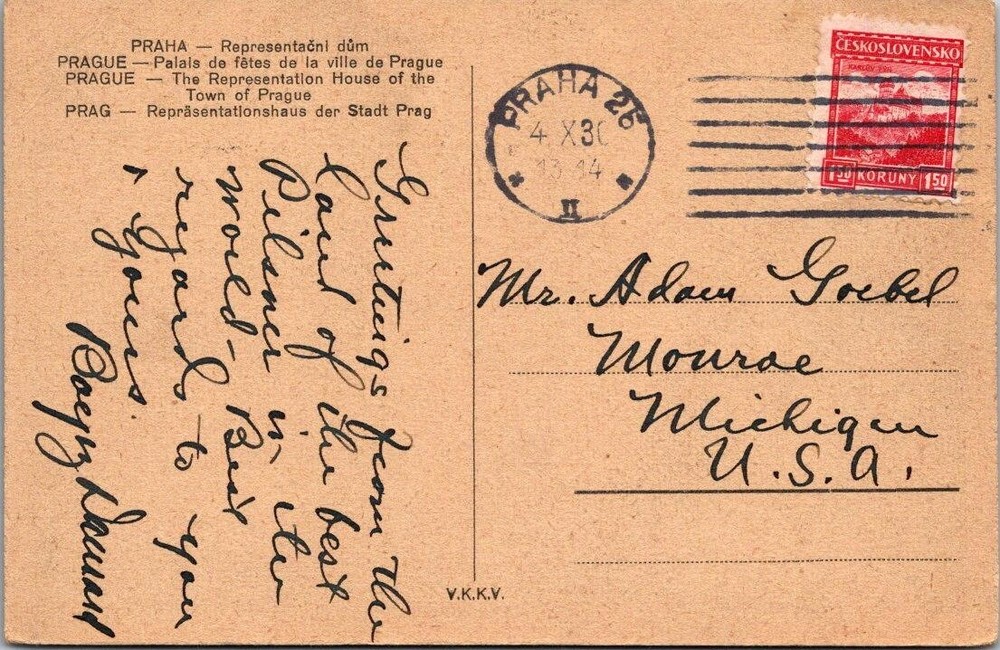 PRAHA — Representační dům
PRAGUE — Palais de fêtes de la ville de Prague
PRAGUE — The Representation House of the
Town of Prague
PRAG — Repräsentationshaus der Stadt Prag
Greetings from the
land of the best
Pilsner in the
world – Best
regards to you
& yours.
PRAHA 25
4 X 30
13 14
II
ČESKOSLOVENSKO
1.50 KORUNY 1.50
Mr. Adam Goebel
Monroe
Michigan
U.S.A.
V.K.K.V.